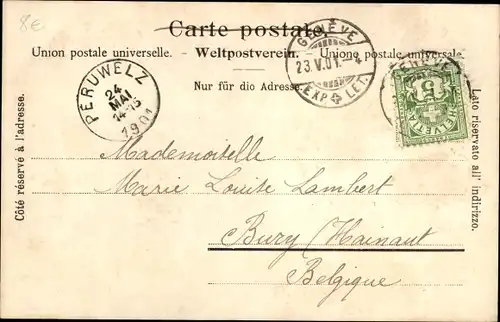 8€
Carte postale.
Union postale universelle. - Weltpostverein. - Unione postale universale.
Nur für die Adresse.
GENÈVE
23.V.01.-4
EXP LET.
PERUWELZ
24
MAI
14-15
1901
5
HELVETIA
Côté réservé à l'adresse.
Lato riservato all' indirizzo.
Mademoiselle
Marie Louise Lambert
Bury (Hainaut
Belgique